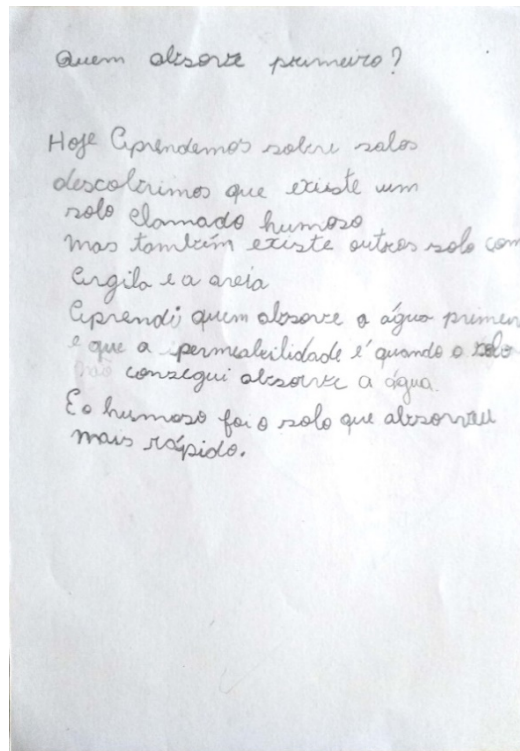 Quem absorve primeiro?
Hoje Aprendemos sobre solos
descobrimos que existe um
solo clamado humoso
mas também existe outros solo com
Argila e a areia
Aprendi quem absorve a água primeir
e que a ipermeabilidade é quando o solo
não consegui absorve a água.
E o humoso foi o solo que absorveu
mais rápido.